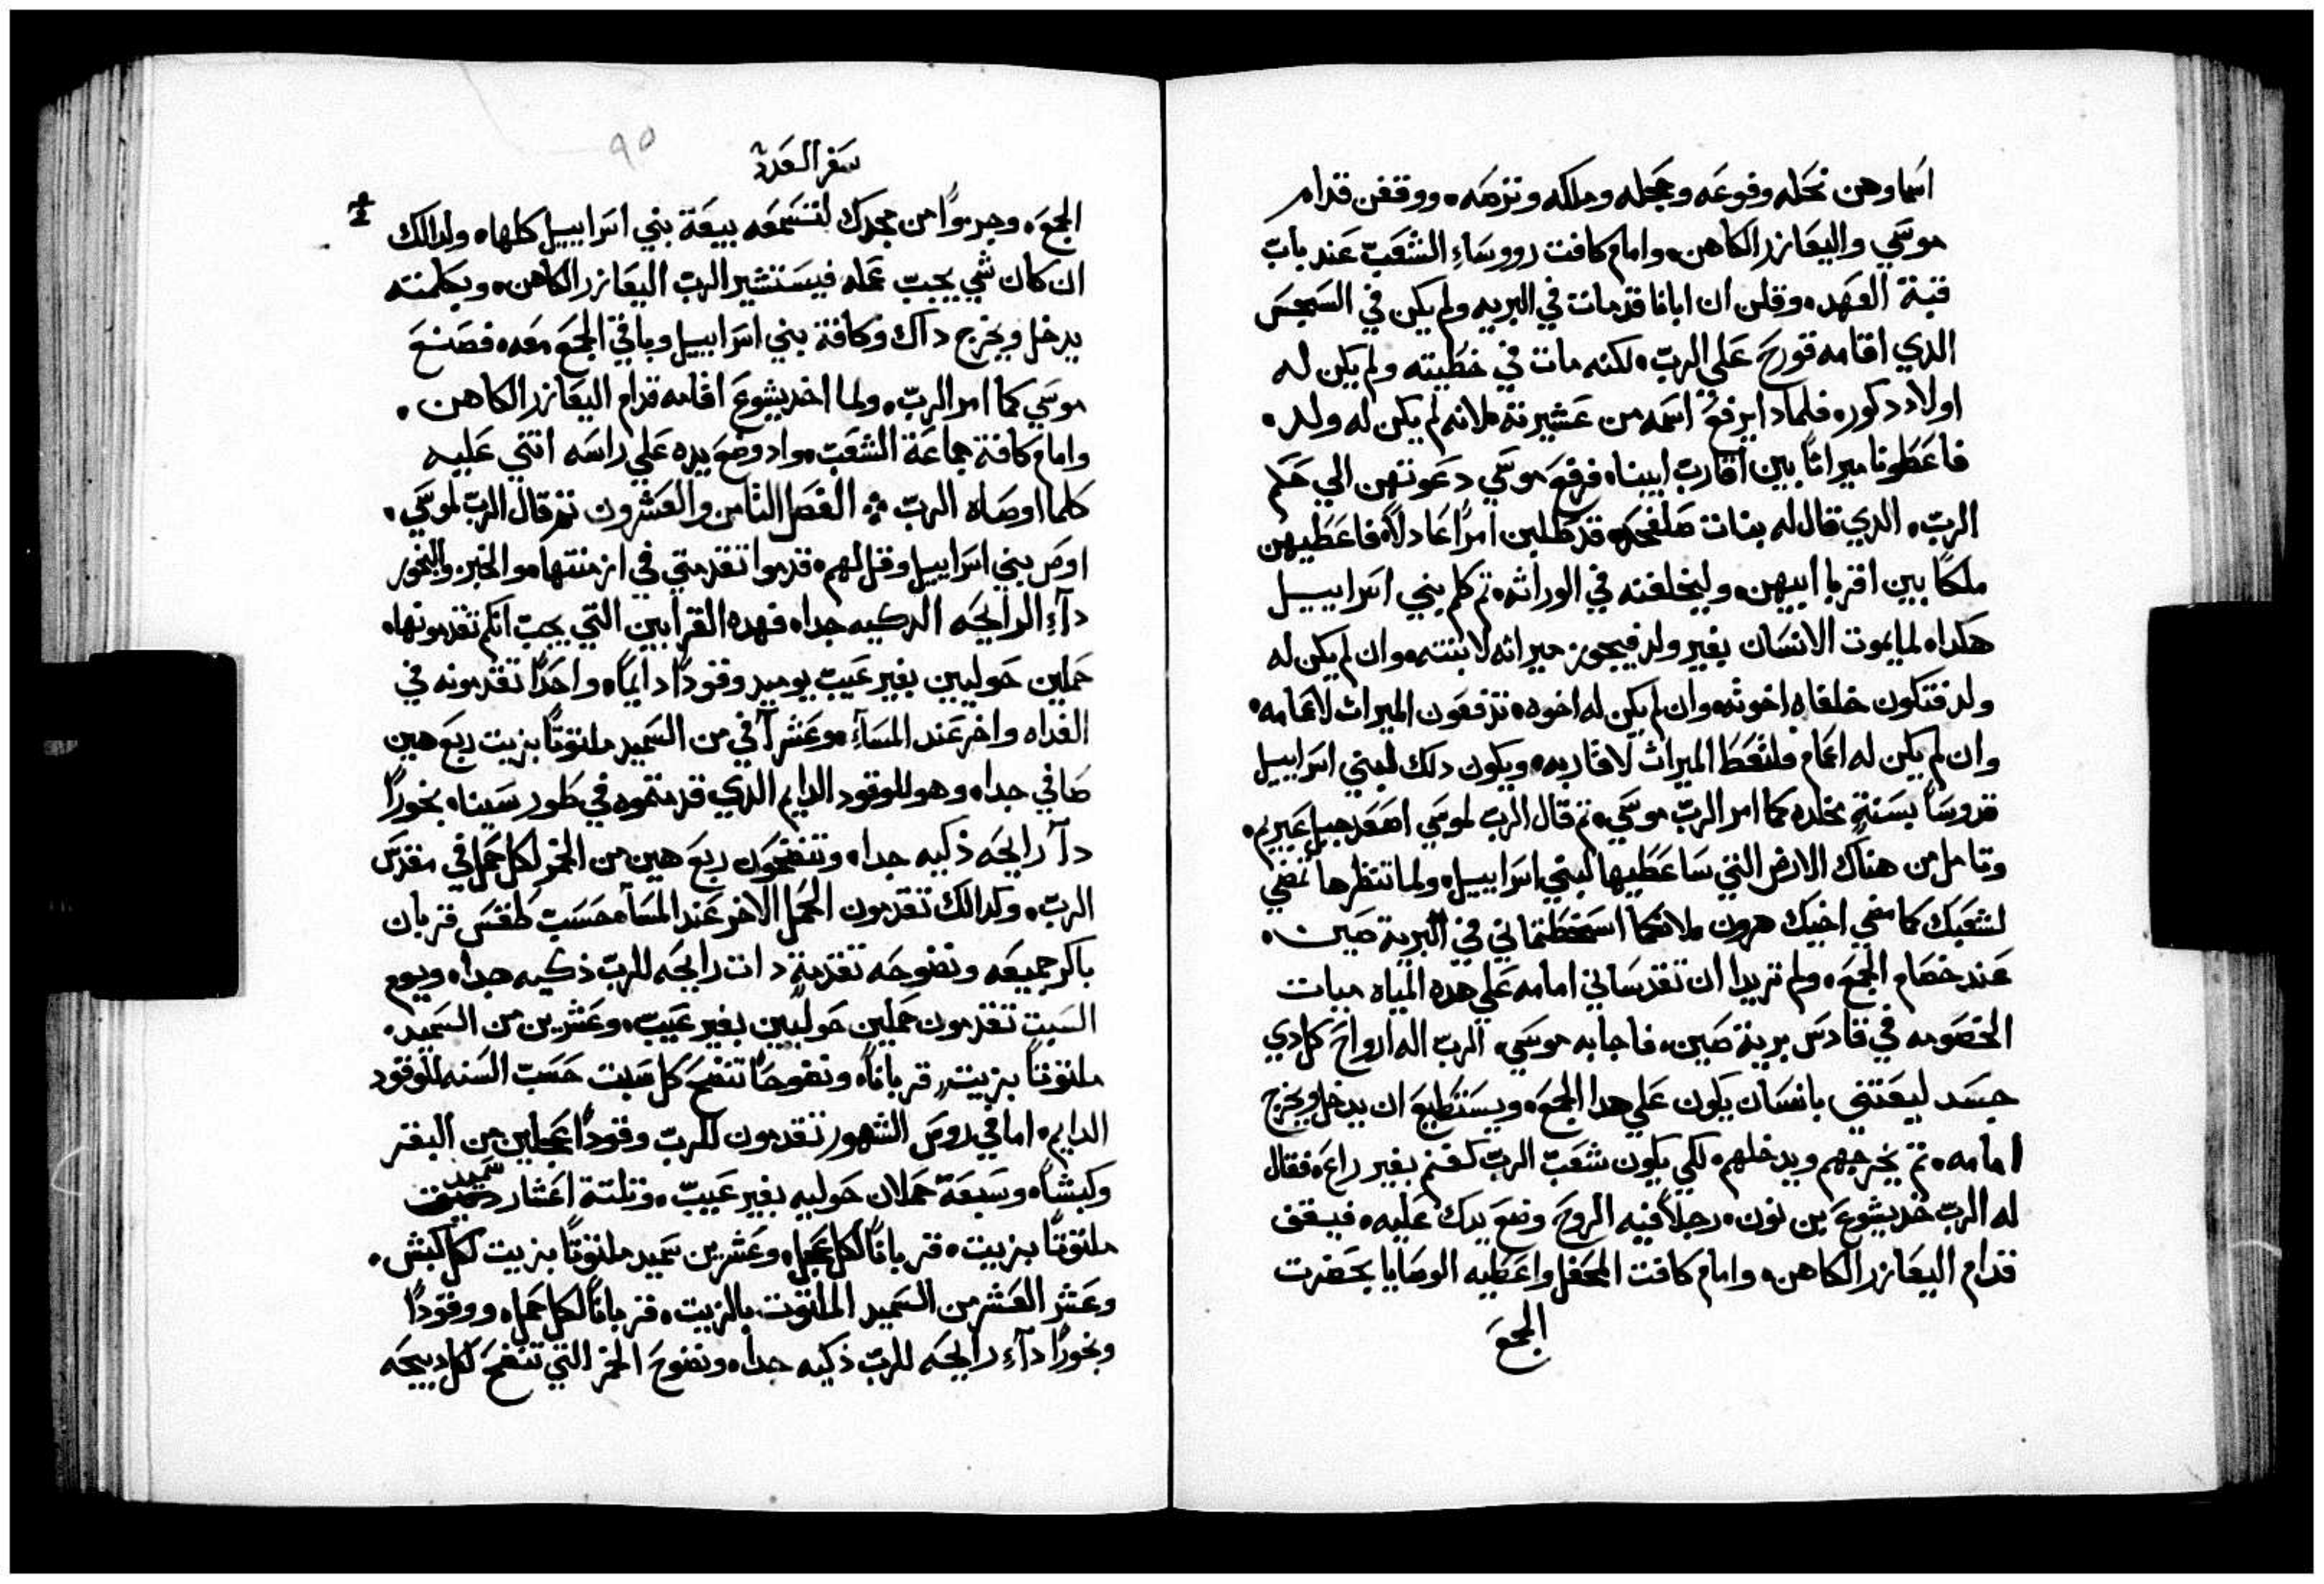 اسما وهن نحله ونوعه وحجله وملكه وترصه، ووقفن قدام
موسي واليعازر الكاهن، وامام كافت رووساء الشعب عند باب
قبة العهد، وقلن ان ابانا قد مات في البريه ولم يكن في السجس
الدي اقامه قورح علي الرب، لكنه مات في خطيته ولم يكن له
اولاد دكور، فلمادا يرفع اسمه من عشيرته، لانه لم يكن له ولد،
فاعطونا ميراثا بين اقارب ابينا، فرفع موسي دعوتهن الي حكم
الرب، الدي قال له بنات صلفحد، قد طلبن امرا عادلا، فاعطيهن
ملكا بين اقربا ابيهن، وليخلفنه في الوراثه، تم كلم بني اسراييل
هكدا، لما يموت الانسان بغير ولد فيجوز ميراثه لابنته، وان لم يكن له
ولد فتكون خلفاه اخوته، وان لم يكن له اخوه، تدفعون الميراث لاعمامه،
وان لم يكن له اعمام فلتعط الميراث لاقاربه، ويكون دلك لبني اسراييل
قدوسا بسنة مخلده كما امر الرب موسي، تم قال الرب لموسي اصعد جبل عبيريم،
وتامل من هناك الارض التي ساعطيها لبني اسراييل، ولما تنظرها تمضي
لشعبك كما مضي اخيك هرون، لانكما اسخطتماني في البرية صين،
عند خصام الجمع، ولم تريدا ان تقدساني امامه علي هده المياه مياة
الخصومه في قادس برية صين، فاجابه موسي، الرب اله ارواح كل دي
جسد ليعتني بانسان يكون علي هدا الجمع، ويستطيع ان يدخل ويخرج
امامه، تم يخرجهم ويدخلهم، لكي يكون شعب الرب كغنم بغير راع، فقال
له الرب خد يشوع بن نون، رجلا فيه الروح وضع يدك عليه، فيقف
قدام اليعازر الكاهن، وامام كافت المحفل واعطيه الوصايا بحضرت
الجمع
سفر العدد
٩٥
الجمع، وجدموا من مجدك لتسمعه بيعة بني اسراييل كلها، ولدالك
ان كان شي يجب عمله فيستشير الرب اليعازر الكاهن، وبكلمته
يدخل ويخرج داك وكافة بني اسراييل وباقي الجمع معه، فصنع
موسي كما امر الرب، ولما اخد يشوع اقامه قدام اليعازر الكاهن،
وامام كافة جماعة الشعب، واد وضع يده علي راسه اتني عليه
كلما اوصاه الرب ÷ الفصل التامن والعشرون تم قال الرب لموسي،
اوص بني اسراييل وقل لهم، قدموا تقدمتي في ازمنتها، والخبز والبخور
داء الرايحه الدكيه جدا، فهده القرابين التي يجب انكم تقدمونها،
حملين حوليين بغير عيب يوميد وقودا دايما، واحدا تقدمونه في
الغداه واخر عند المساء، وعشر افي من السميد ملتوتا بزيت ربع هين
صافي جدا، وهو للوقود الدايم الدي قدمتموه في طور سينا، بخورا
دآ رايحه ذكيه جدا، وتنضحون ربع هين من الخمر لكل حمل في مقدس
الرب، وكدالك تقدمون الحمل الاخر عند المسآ، حسب طقس قربان
باكر جميعه ونضوحه تقدمة دات رايحه للرب ذكيه جدا، ويوم
السبت تقدمون حملين حوليين بغير عيب، وعشرين من السميد،
ملتوتا بزيت، قربانا، ونضوحا تنضح كل سبت حسب السنه للوقود
الدايم، اما في روس الشهور تقدمون للرب وقودا عجلين من البقر
وكبشا، وسبعة حملان حوليه بغير عيب، وتلتة اعشار سميد
ملتوتا بزيت، قربانا لكل عجل، وعشرين سميد ملتوتا بزيت لكل كبش،
وعشر العشر من السميد الملتوت بالزيت، قربانا لكل حمل، ووقودا
وبخورا داء رايحه للرب ذكيه جدا، ونضوح الخمر التي تنضح لكل دبيحه